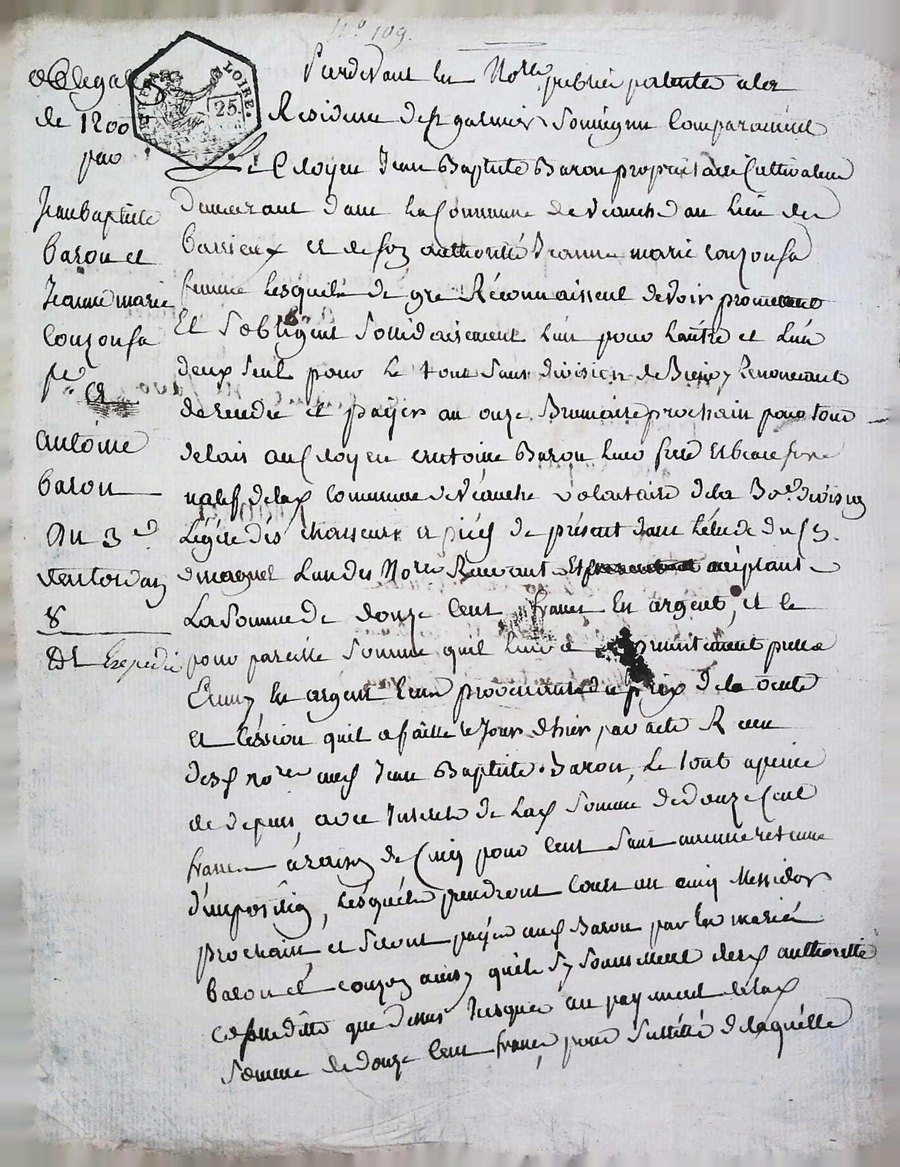 N.o 109.
obligaon
de 1200
par
Jean baptiste
baron et
Jeanne marie
couzonfa
fe a
antoine
baron
du 3e
ventose an
8
Dt Expedié
LOIRE.
25
Pardevant les Notres publics patentés a la
Residence de St galmier soussignés Comparaissent
Le Citoyen Jean Baptiste Baron propriétaire Cultivateur
Demeurant dans la Commune de Veauche au lieu des
barrieux et de son authorité Jeanne marie couzonfa
femme lesquels de gré Réconnaissent devoir promettent
Et S'obligent Sollidairement l'un pour l'autre et l'un
deux seul pour le tout sans division de Biens Renoncants
de rendre et payer au onze Brumaire prochain pour tout
delais au Citoyen antoine Baron leur frere et beau frere
natif de lad Commune de Veauche volontaire de la
Légére des chasseurs a pied de présent dans l'étude du Cn.
dmagnet L'un des Notres Recevants acceptant
La Somme de douze Cent francs En argent, et ce
pour pareille Somme qu'il leur a présentement prette
En argent Leur provenants du prix de la vente
et Cession qu'il a faitte le Jour d'hier par acte Recu
desd notres aud Jean Baptiste Baron, Le tout a peine
de depens, avec Interets de Lad Somme de douze Cent
francs a raison de Cinq pour Cent sans aucune retenue
d'imposition, Lesquels prendront cours au cinq Messidor
prochain et seront payés aud Baron par les mariés
baron et couzon ainsi qu'ils s'y soumettent desd authorité
que dessus Jusques au payment de lad
Somme de douze Cent francs, pour sureté de laquelle